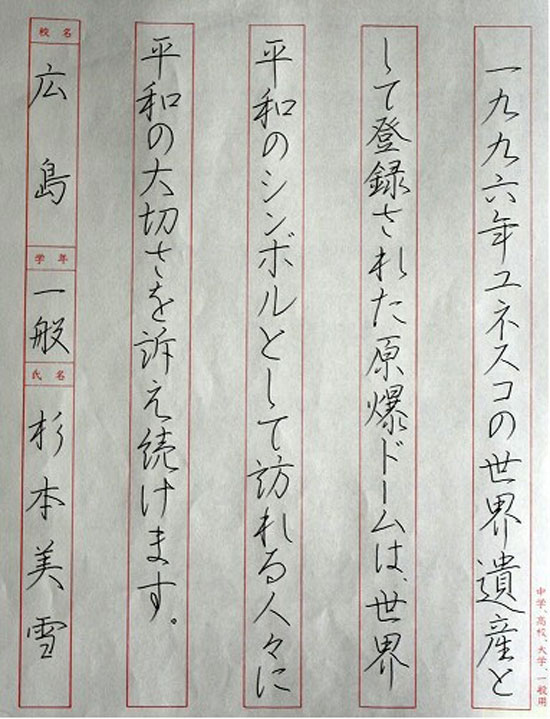 一九九六年ユネスコの世界遺産と
して登録された原爆ドームは、世界
平和のシンボルとして訪れる人々に
平和の大切さを訴え続けます。
校名
広島
学年
一般
氏名
杉本美雪
中学、高校、大学、一般用